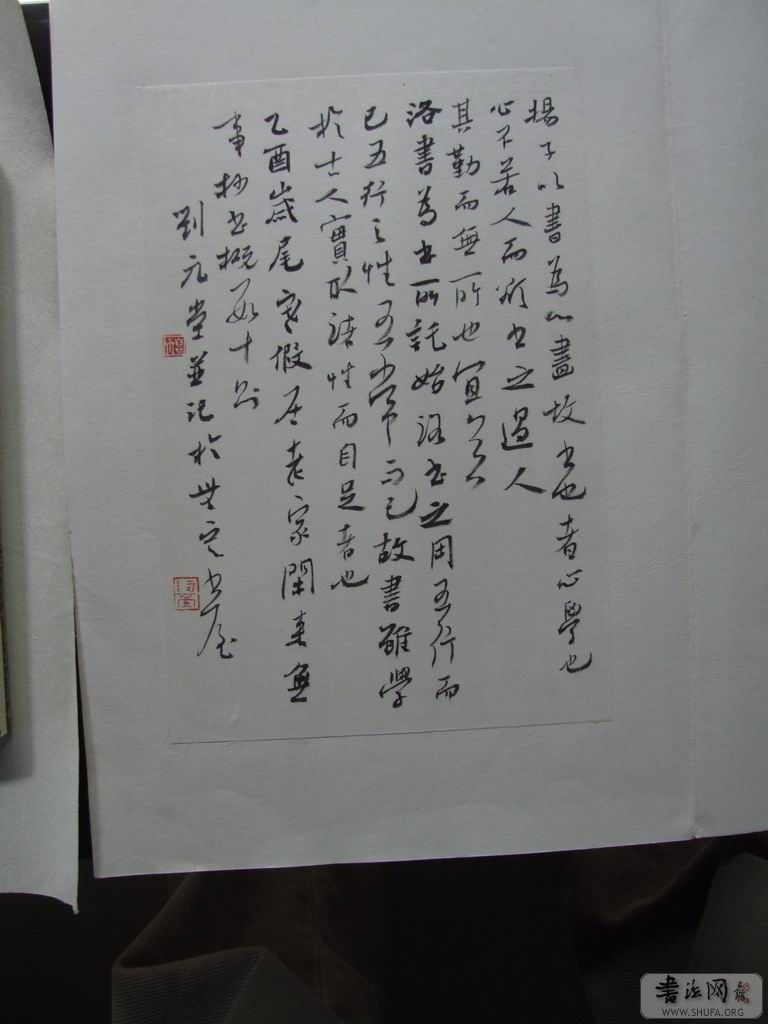 揚子以書為心畫故書也者心學也
心不若人而欲書之過人
其勤而無所也宜矣
洛書為書所託始洛書之用五行而
已五行之性五常而已故書雖學
於古人實取諸性而自足者也
乙酉歲尾寒假居老家閑來無
事抄書概數十則
劉元堂並記於
書法网
WWW.SHUFA.ORG